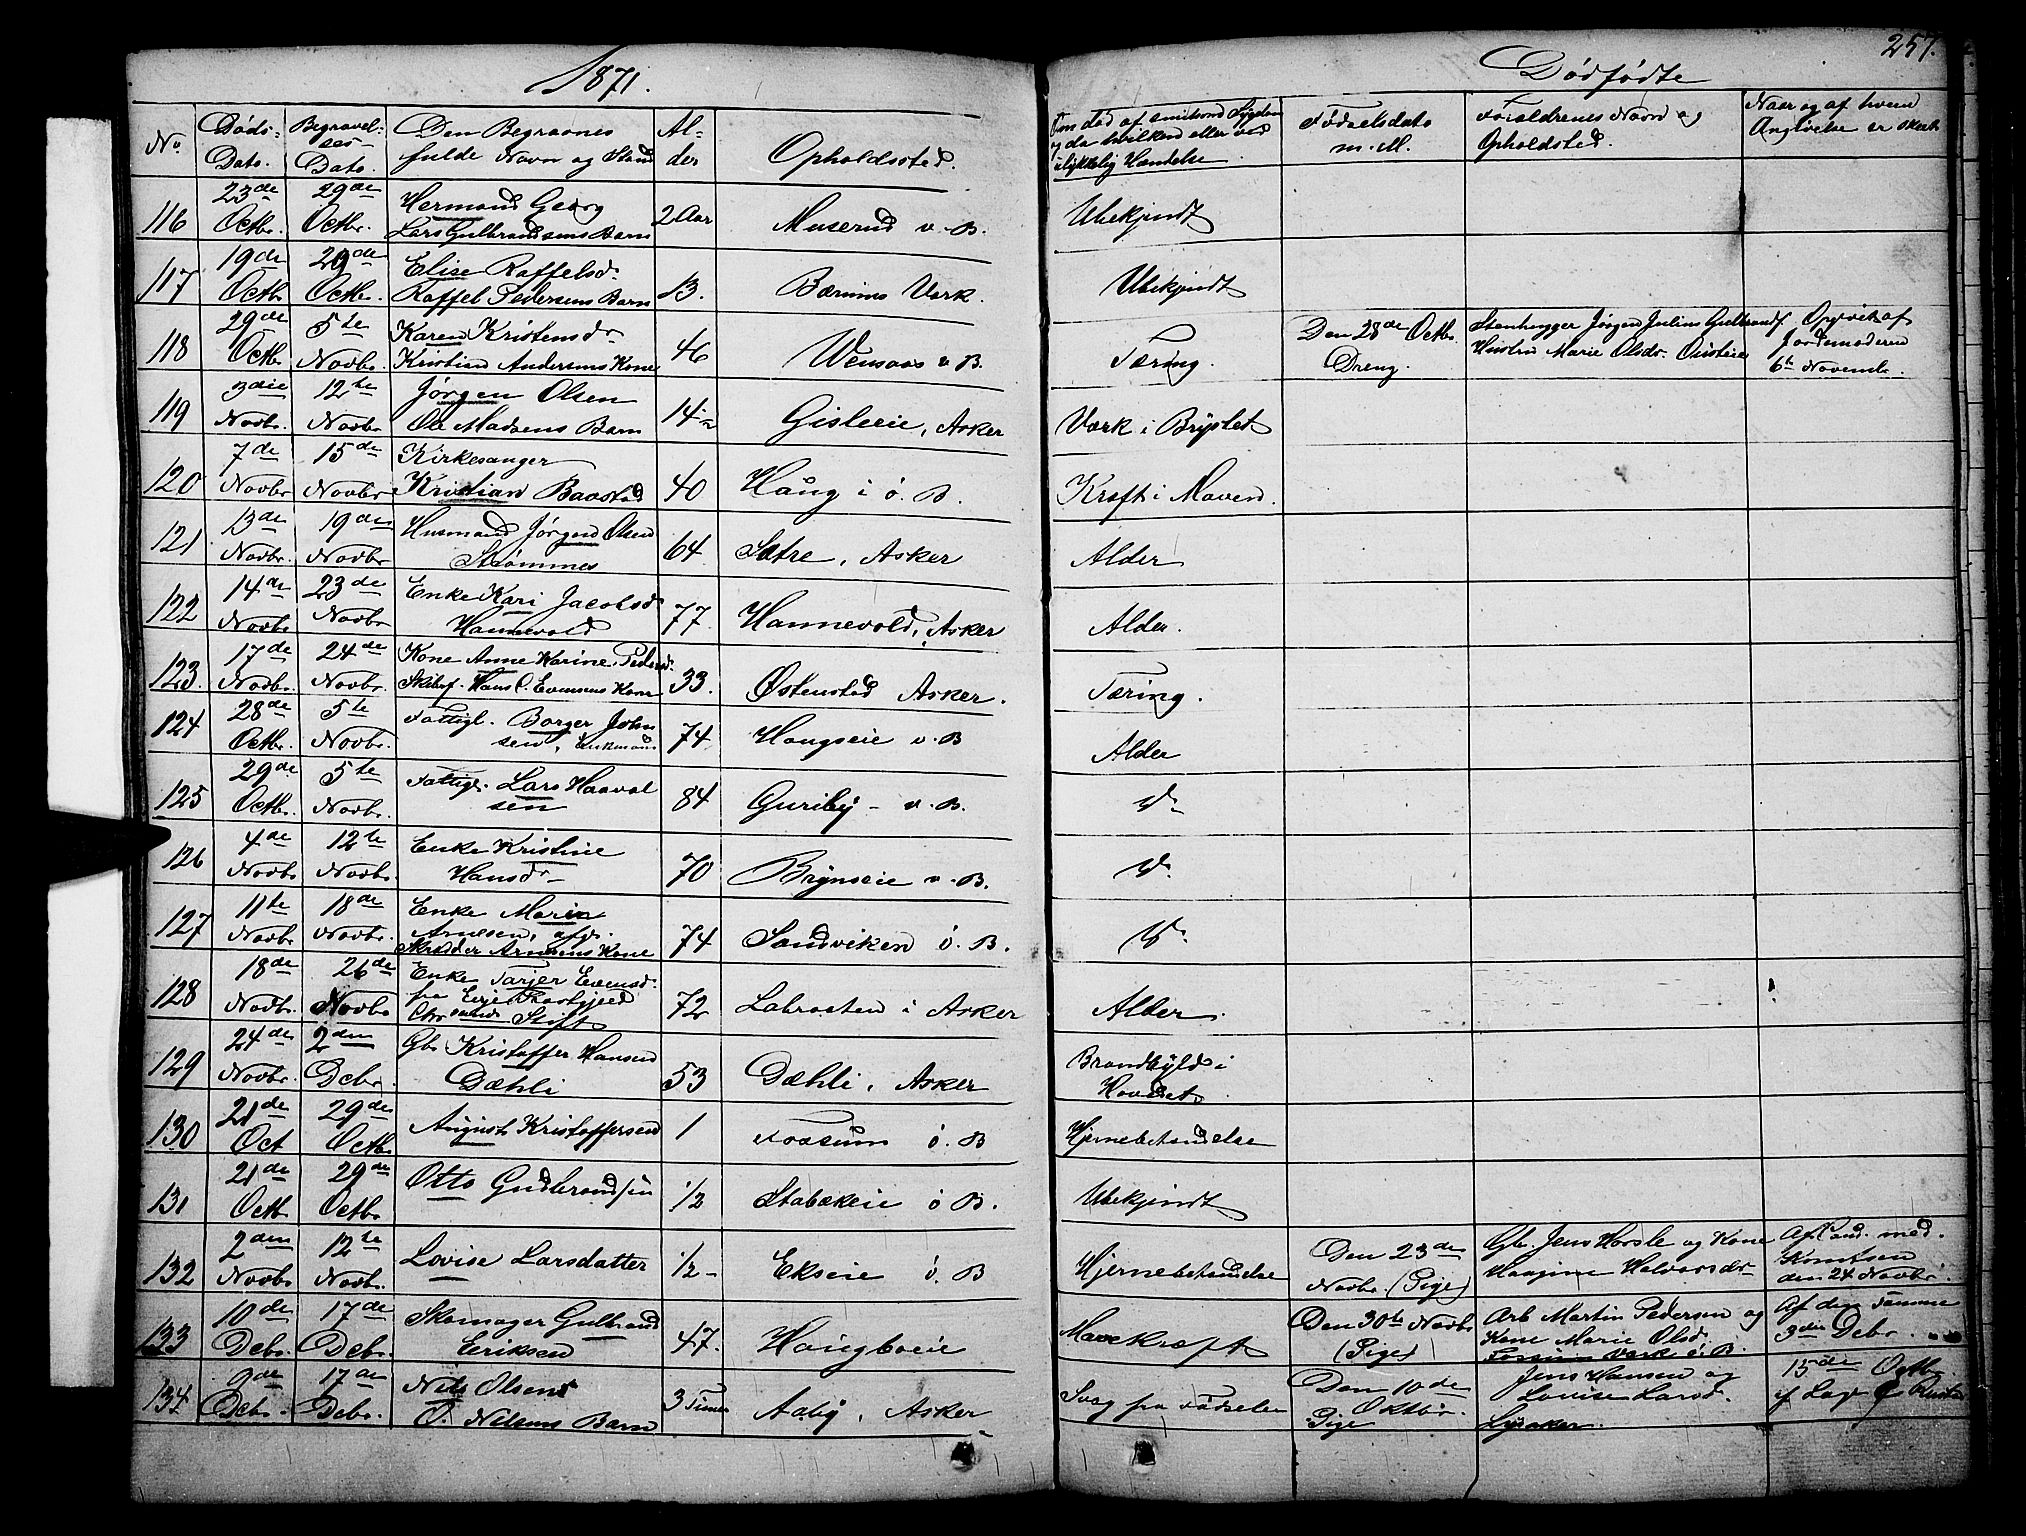 1871.
Dødfødte
257.
No.
Døds-
Dato.
Begravel-
ses-
Dato.
Den Begravnes
fulde Navn og Stand
Al-
der
Opholdsted.
Om død af smitsom Sygdom
og da hvilken eller ved
ulykkelig Hændelse
Fødselsdato
m. M.
Forældrenes Navn og
Opholdsted.
Naar og af hvem
Angivelse er skeet
116
23de
Octbr.
29de
Octbr.
Hermand Georg
Lars Gulbrandsens Barn
2 Aar
Muserud v. B.
Ubekjendt
117
19de
Octb.
29de
Octbr.
Elise Raffelsd.
Raffel Pedersens Barn
13.
Bærums Værk.
Ubekjendt
118
29de
Octbr.
5te
Novbr.
Karen Kristensdr
Kristian Andersens Kone
46
Wensaas v B.
Tæring.
Den 28de Octbr.
Dreng.
Stenhugger Jørgen Julius Gulbrands.
Hustru Marie Olsdr.
Opgivet af
Jordemoderen
6te Novemb.
119
3die
Novbr.
12te
Novbr
Jørgen Olsen
Ole Madsens Barn
14
Gisleeie, Asker
Værk i Brystet
120
7de
Novbr
15de
Novbr
Kirkesanger
Kristian Baastad
40
Haug i ø. B.
Kræft i Maven.
121
13de
Novbr.
19de
Novbr
Husmand Jørgen Olsen
Strømmes
64
Sætre, Asker
Alder
122
14de
Novbr
23de
Novbr
Enke Kari Jacobsd
Hannevold
77
Hannevold, Asker
Alder.
123.
17de
Novbr.
24de
Novbr.
Kone Anne Karine Pedersd.
Skibsf. Hans C. Evensens Kone
33.
Østenstad Asker.
Tæring.
124
28de
Octbr.
5te
Novbr.
Fattigl. Borger John
sen, Enkemand
74
Haugseie v. B
Alder
125
29de
Octbr.
5te
Novbr.
Fattigl. Lars Haavol
sen
84
Guriby - v. B.
126
4de
Novbr
12te
Novbr.
Enke Kristine
Hansdr
70
Brynseie v. B.
127
11te
Novbr.
18de
Novbr.
Enke Marie
Arnesen, afg.
Skrædder Arnesens Kone
74
Sandviken ø. B.
128
18de
Novbr.
26de
Novbr
Enke Tarjer Evensd.
fra Evje Præstgjeld
Chrsands Stift
72
Labraaten i Asker
Alder.
129
24de
Novbr.
2den
Debr.
Gbr Kristoffer Hansen
Dæhli
53
Dæhli, Asker
Brandbyld i
Hovedet
130
21de
Oct
29de
Octbr.
August Kristoffersen
1
Fossum ø. B
Hjernebetændelse
131
21de
Octb.
29de
Octbr
Otto Gudbrandsen
1/2
Stabækeie ø B.
Ubekjendt
132
2den
Novbr.
12te
Novbr.
Lovise Larsdatter
1/2
Ekseie ø. B
Hjernebetændelse
Den 23de
Novbr. (Pige)
Gbr. Jens Horsle og Kone
Haagine Halvorsdr
Af Cand. med.
Knutsen
den 24 Novbr.
133
10de
Debr.
17de
Debr.
Skomager Gulbrand
Eriksen
47.
Haugboeie
Mavekræft
Den 30te Novbr
(Pige)
Arb Martin Pedersen og
Kone Marie Olsd.
Fossum Værk ø. B.
Af den Samme
3die Debr.
134
9de
Debr.
17de
Debr.
Nils Olsen
O. Nilsens Barn
3 Timer
Aaby, Asker
Svag fra Fødselen
Den 10de
Oktbr.
Pige
Jens Hansen og
Lovise Larsd.
Lysaker.
15de Octbr